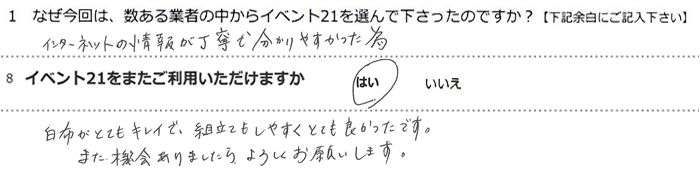 1 なぜ今回は、数ある業者の中からイベント21を選んで下さったのですか？【下記余白にご記入下さい】
インターネットの情報が丁寧で分かりやすかった為
8 イベント21をまたご利用いただけますか はい いいえ
白布がとてもキレイで、組立てもしやすくとても良かったです。
また機会ありましたらよろしくお願いします。